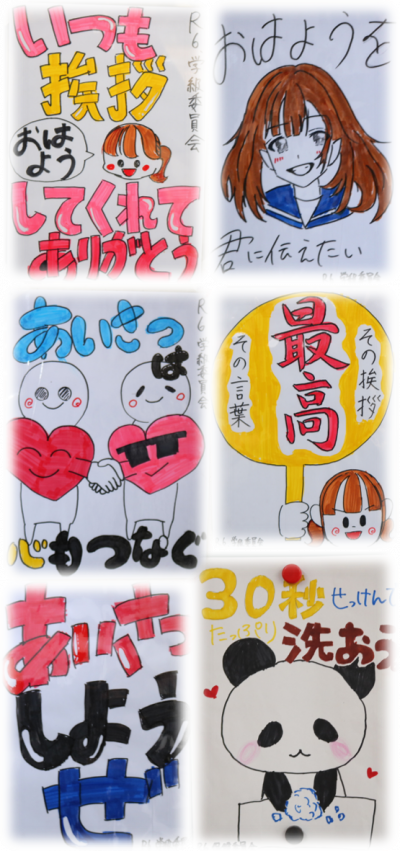 いつも
挨拶
R6 学級委員会
おは
よう
してくれて
ありがとう
おはようを
君に伝えたい
あいさつ
は
R6 学級委員会
心もつなぐ
その挨拶
最高
その言葉
あいさつ
しよう
ぜ
30秒 せっけんで
たっぷり 洗おう